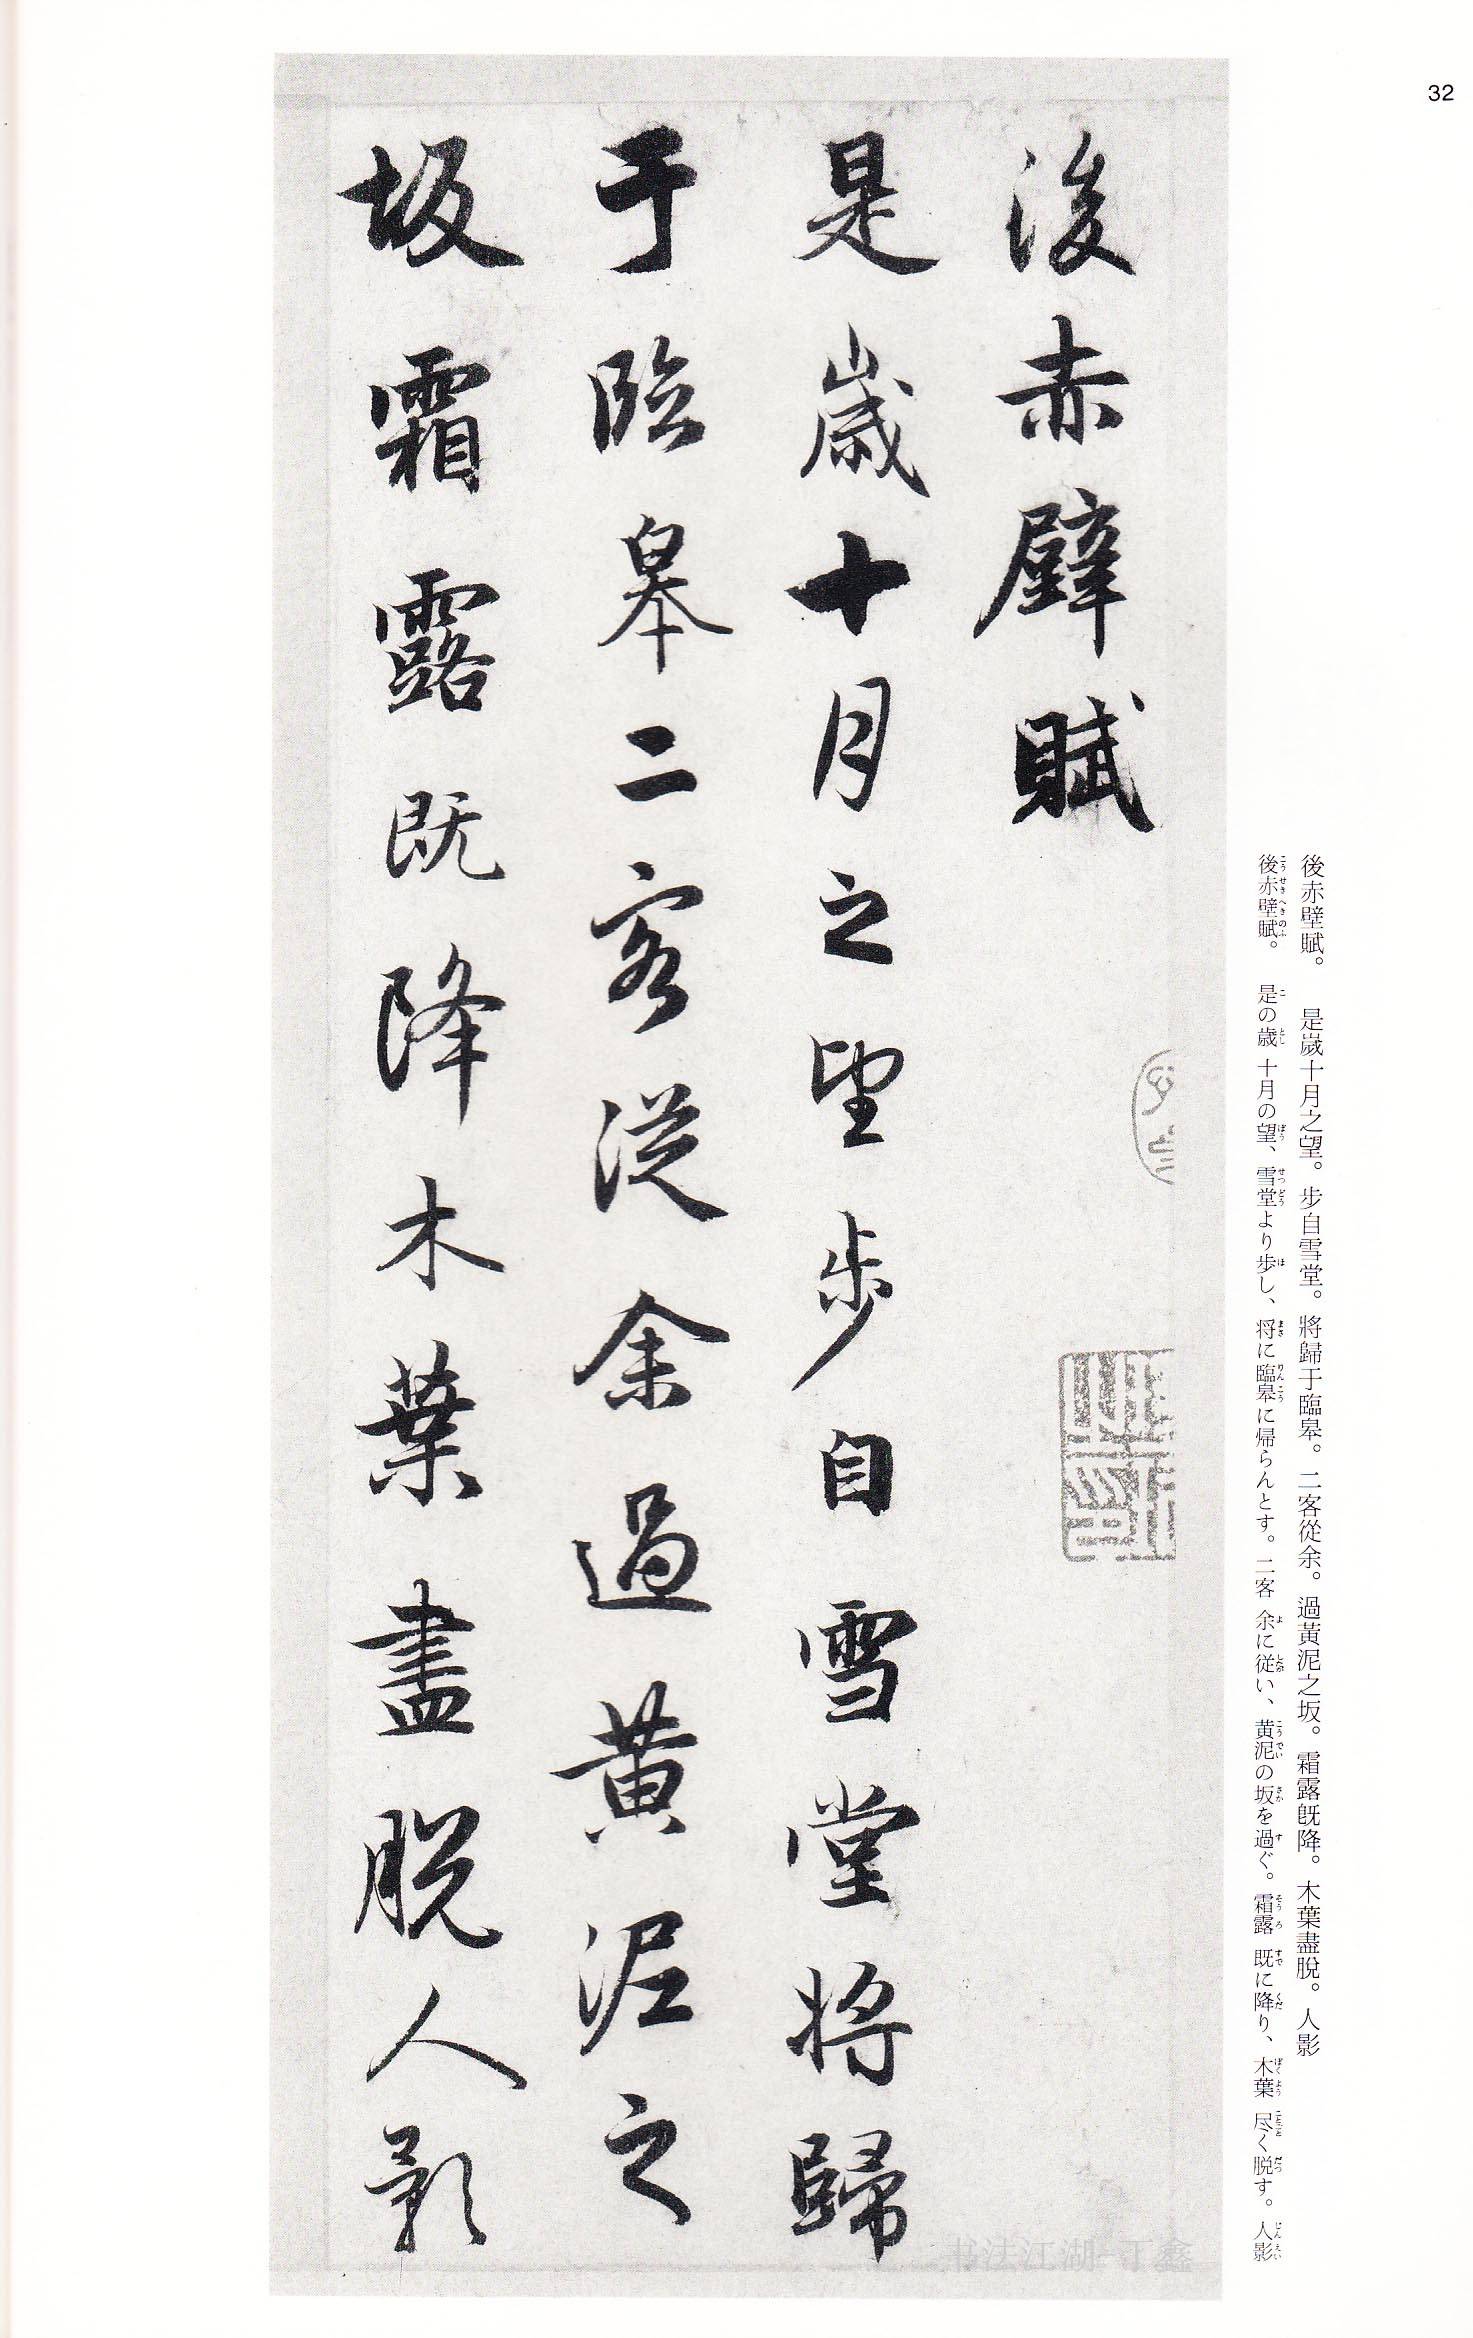 32
後赤壁賦。　是歲十月之望。步自雪堂。將歸于臨皋。二客從余。過黃泥之坂。霜露既降。木葉盡脫。人影
後赤壁賦。　是の歳 十月の望、雪堂より歩し、将に臨皋に帰らんとす。二客 余に従い、黄泥の坂を過ぐ。霜露 既に降り、木葉 尽く脱す。人影
後赤壁賦
是歲十月之望步自雪堂將歸
于臨皋二客從余過黃泥之
坂霜露既降木葉盡脫人影
书法江湖-丁鑫